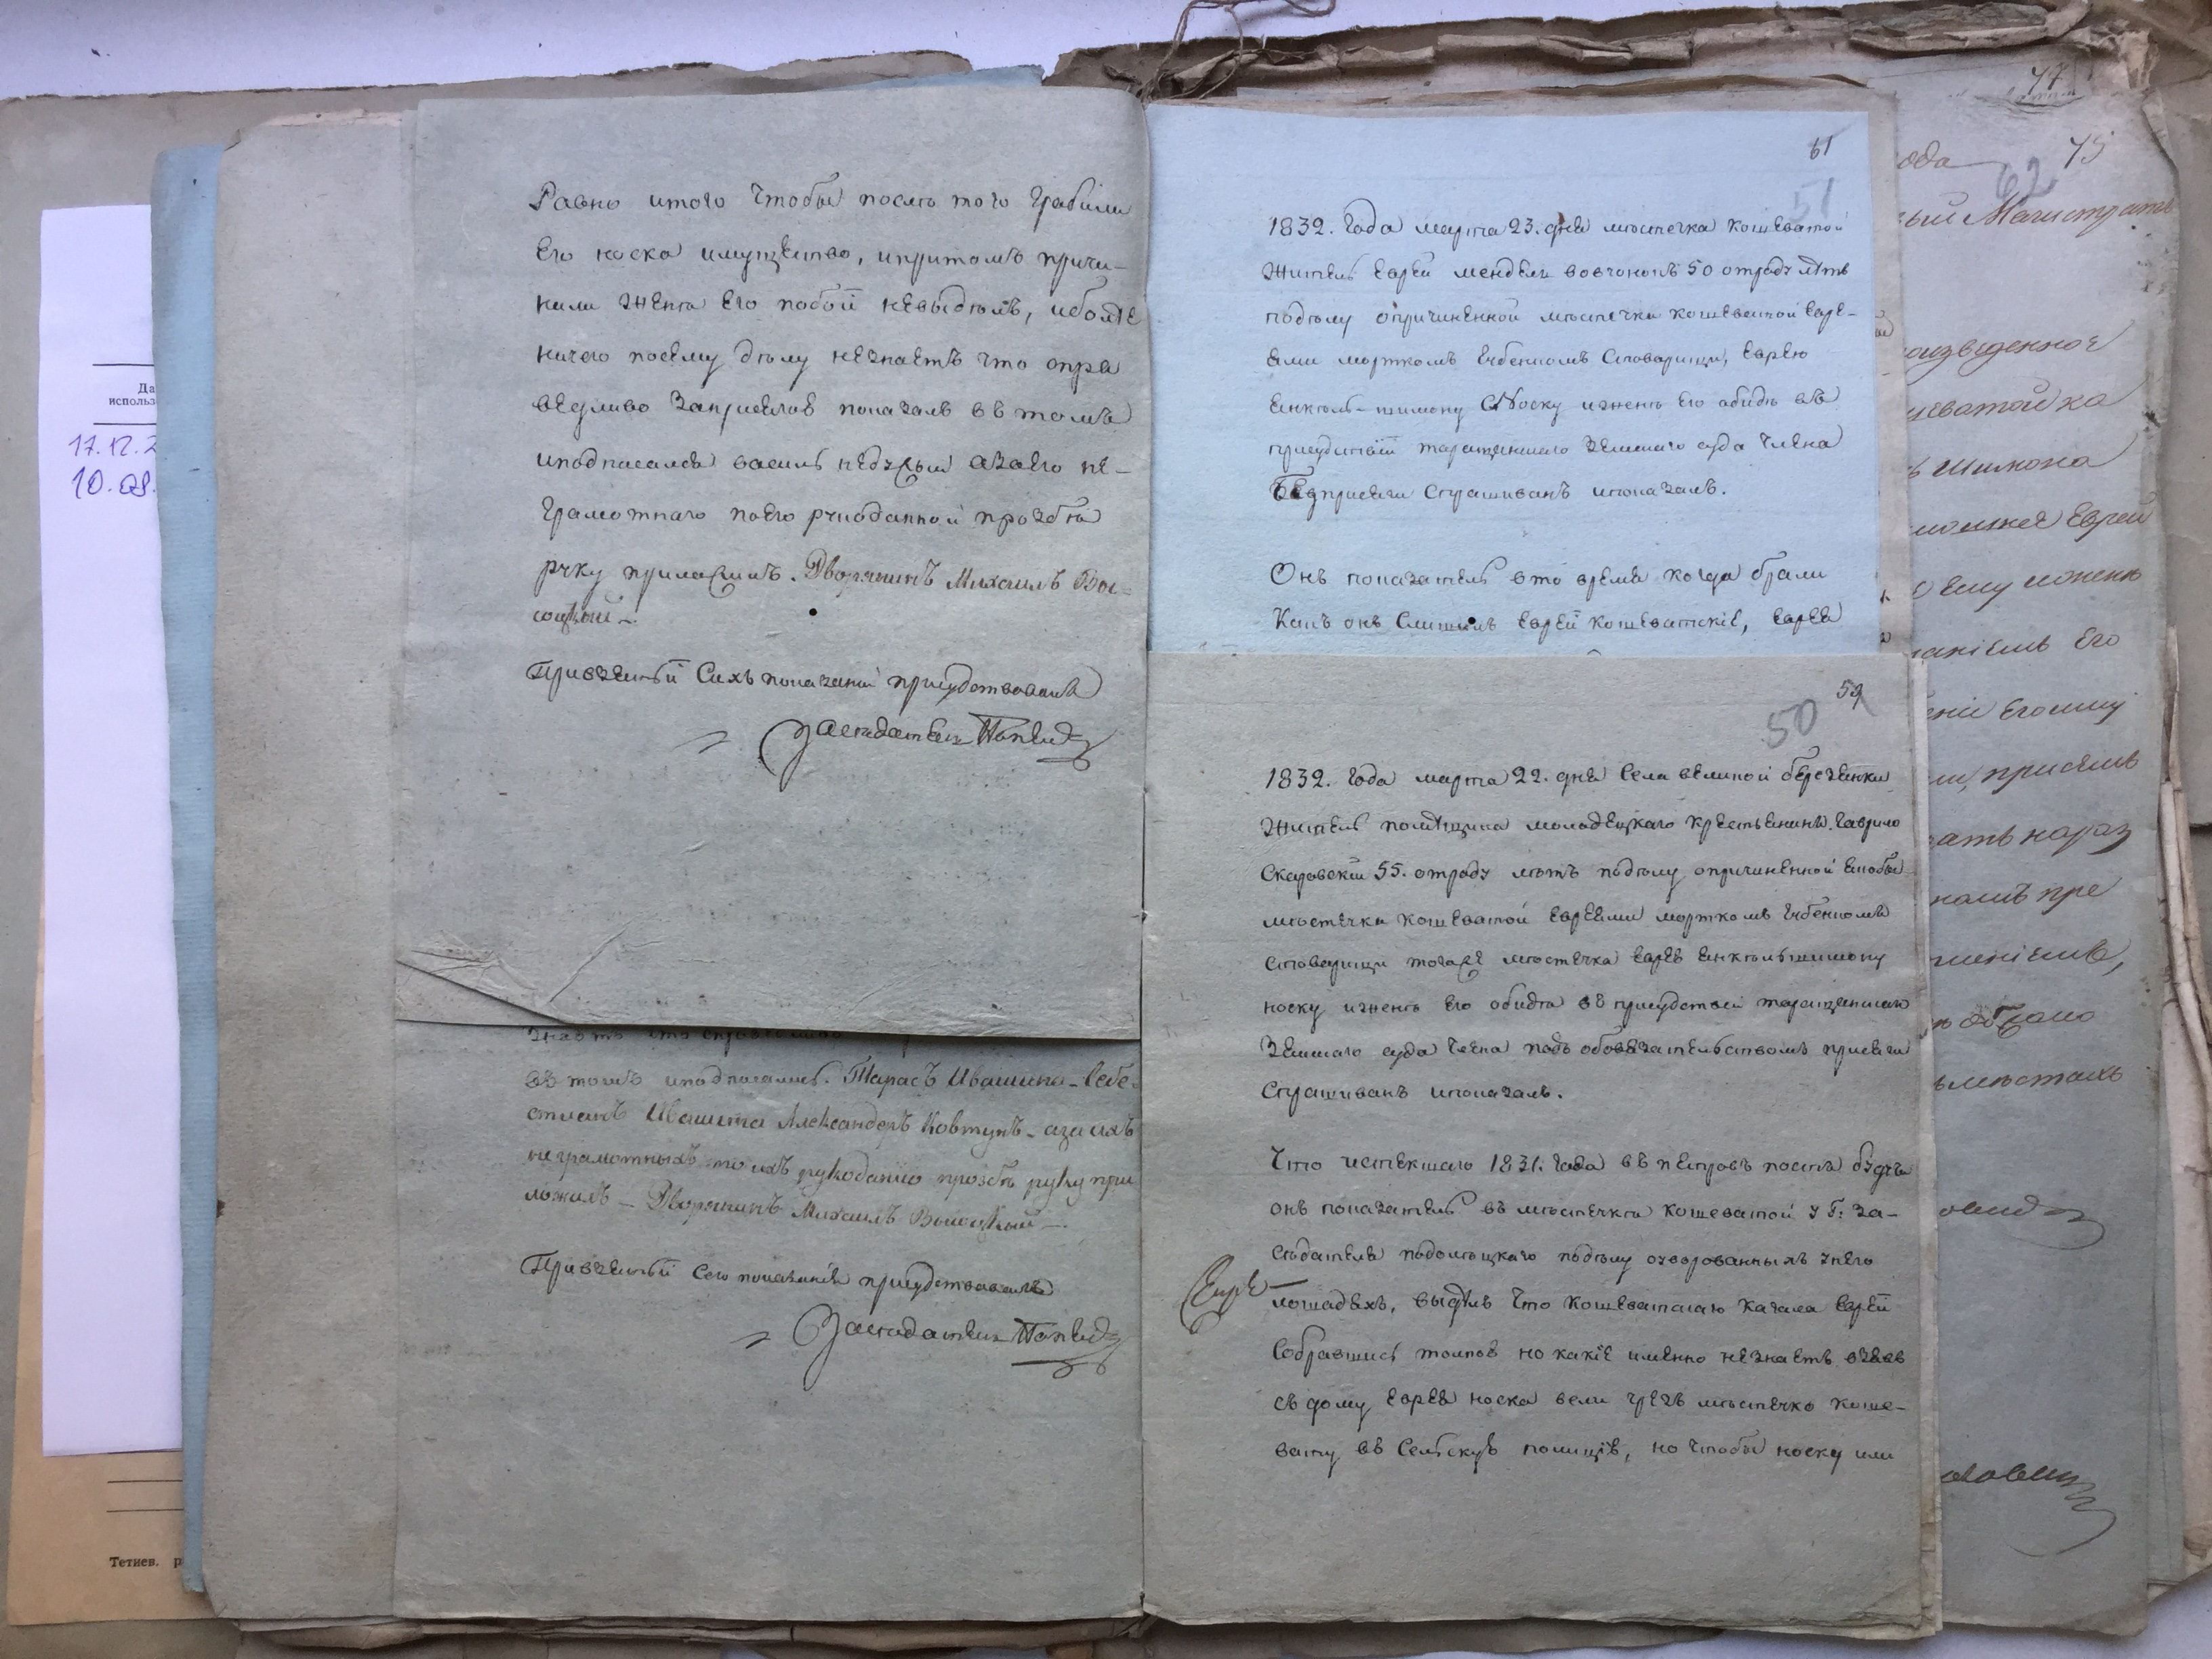 Равно итого чтобы после того грабили
его носка имущество, и притомъ причи-
нили женѣ его побои невыделъ, иболѣе
ничего посему делу незнаетъ что спра
ведливо заприсягов показалъ въ томъ
иподписался василь азаего не-
грамотнаго поего рукоданной прозбѣ
руку приложилъ. Дворянинъ Михаилъ Вы-
соцкий -.
Привзятьи сихъ показаний присудствовалъ
Заседатель
въ томъ иподписались. Тарасъ Ивашина - Себе-
стиянъ Ивашина Александеръ Ковтунъ - аза ихъ
неграмотныхъ по ихъ рукоданно прозбѣ руку при
ложилъ - Дворянинъ Михаилъ Высоцкий -.
Привзятьи сего показания присудствовалъ
Заседатель
61
51
1832. года марта 23. дня мѣстечка кошеватой
житель еврей мендель 50 отроду лѣтъ
подѣлу опричиненной мѣстечка кошеватой евре-
ями морткомъ стоварищи, еврею
енкель-шимону Носку ижене его обидѣ въ
присудствіи таращанскаго земскаго суда члена
безприсяги спрашиванъ ипоказалъ.
Онъ показатель вто время когда брали
какъ онъ слишилъ еврей кошеватскіе, еврея
59
50
1832. года марта 22. дня села великой березянки
житель помѣщика молодецкаго крестьянинъ гаврило
Скаровский 55. отроду лѣтъ подѣлу опричиненной якобы
мѣстечка кошеватой евреями морткомъ
стоварищи тогоже мѣстечка еврею енкельшимону
носку ижене его обидѣ въ присудствіи таращанскаго
земскаго суда члена подъ обовязательствомъ присяги
спрашиванъ ипоказалъ.
Что истекшаго 1831. года въ петровъ постъ будучи
онъ показатель въ мѣстечкѣ кошеватой у г: за-
сѣдателя подолецкаго подѣлу оуворованныхъ унего
лошадехъ, выдѣлъ что кошеватскаго кагала еврей
собравшись толпою но какіе именно незнаетъ взявъ
съ дому еврея носка вели чрезъ мѣстечко коше-
вату въ сельскую полицію, но чтобы носку или
77
75
ода
62
ый Магистратъ
оизведенное
еватой ка
ъ шимона
еврей
ему иженѣ
аніемъ его
еніи егоиму
ли, присемъ
ать нараз
намъ пре
ненiемъ,
ъ мѣстахъ
Да
использ
17.12.2
10.08.
Тетиев. р